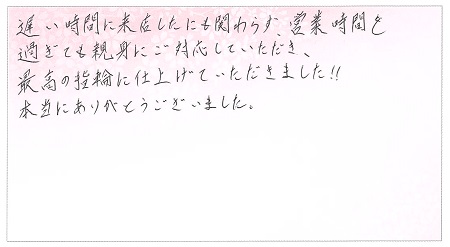 遅い時間に来店したにも関わらず、営業時間を
過ぎても親身にご対応していただき、
最高の指輪に仕上げていただきました!!
本当にありがとうございました。